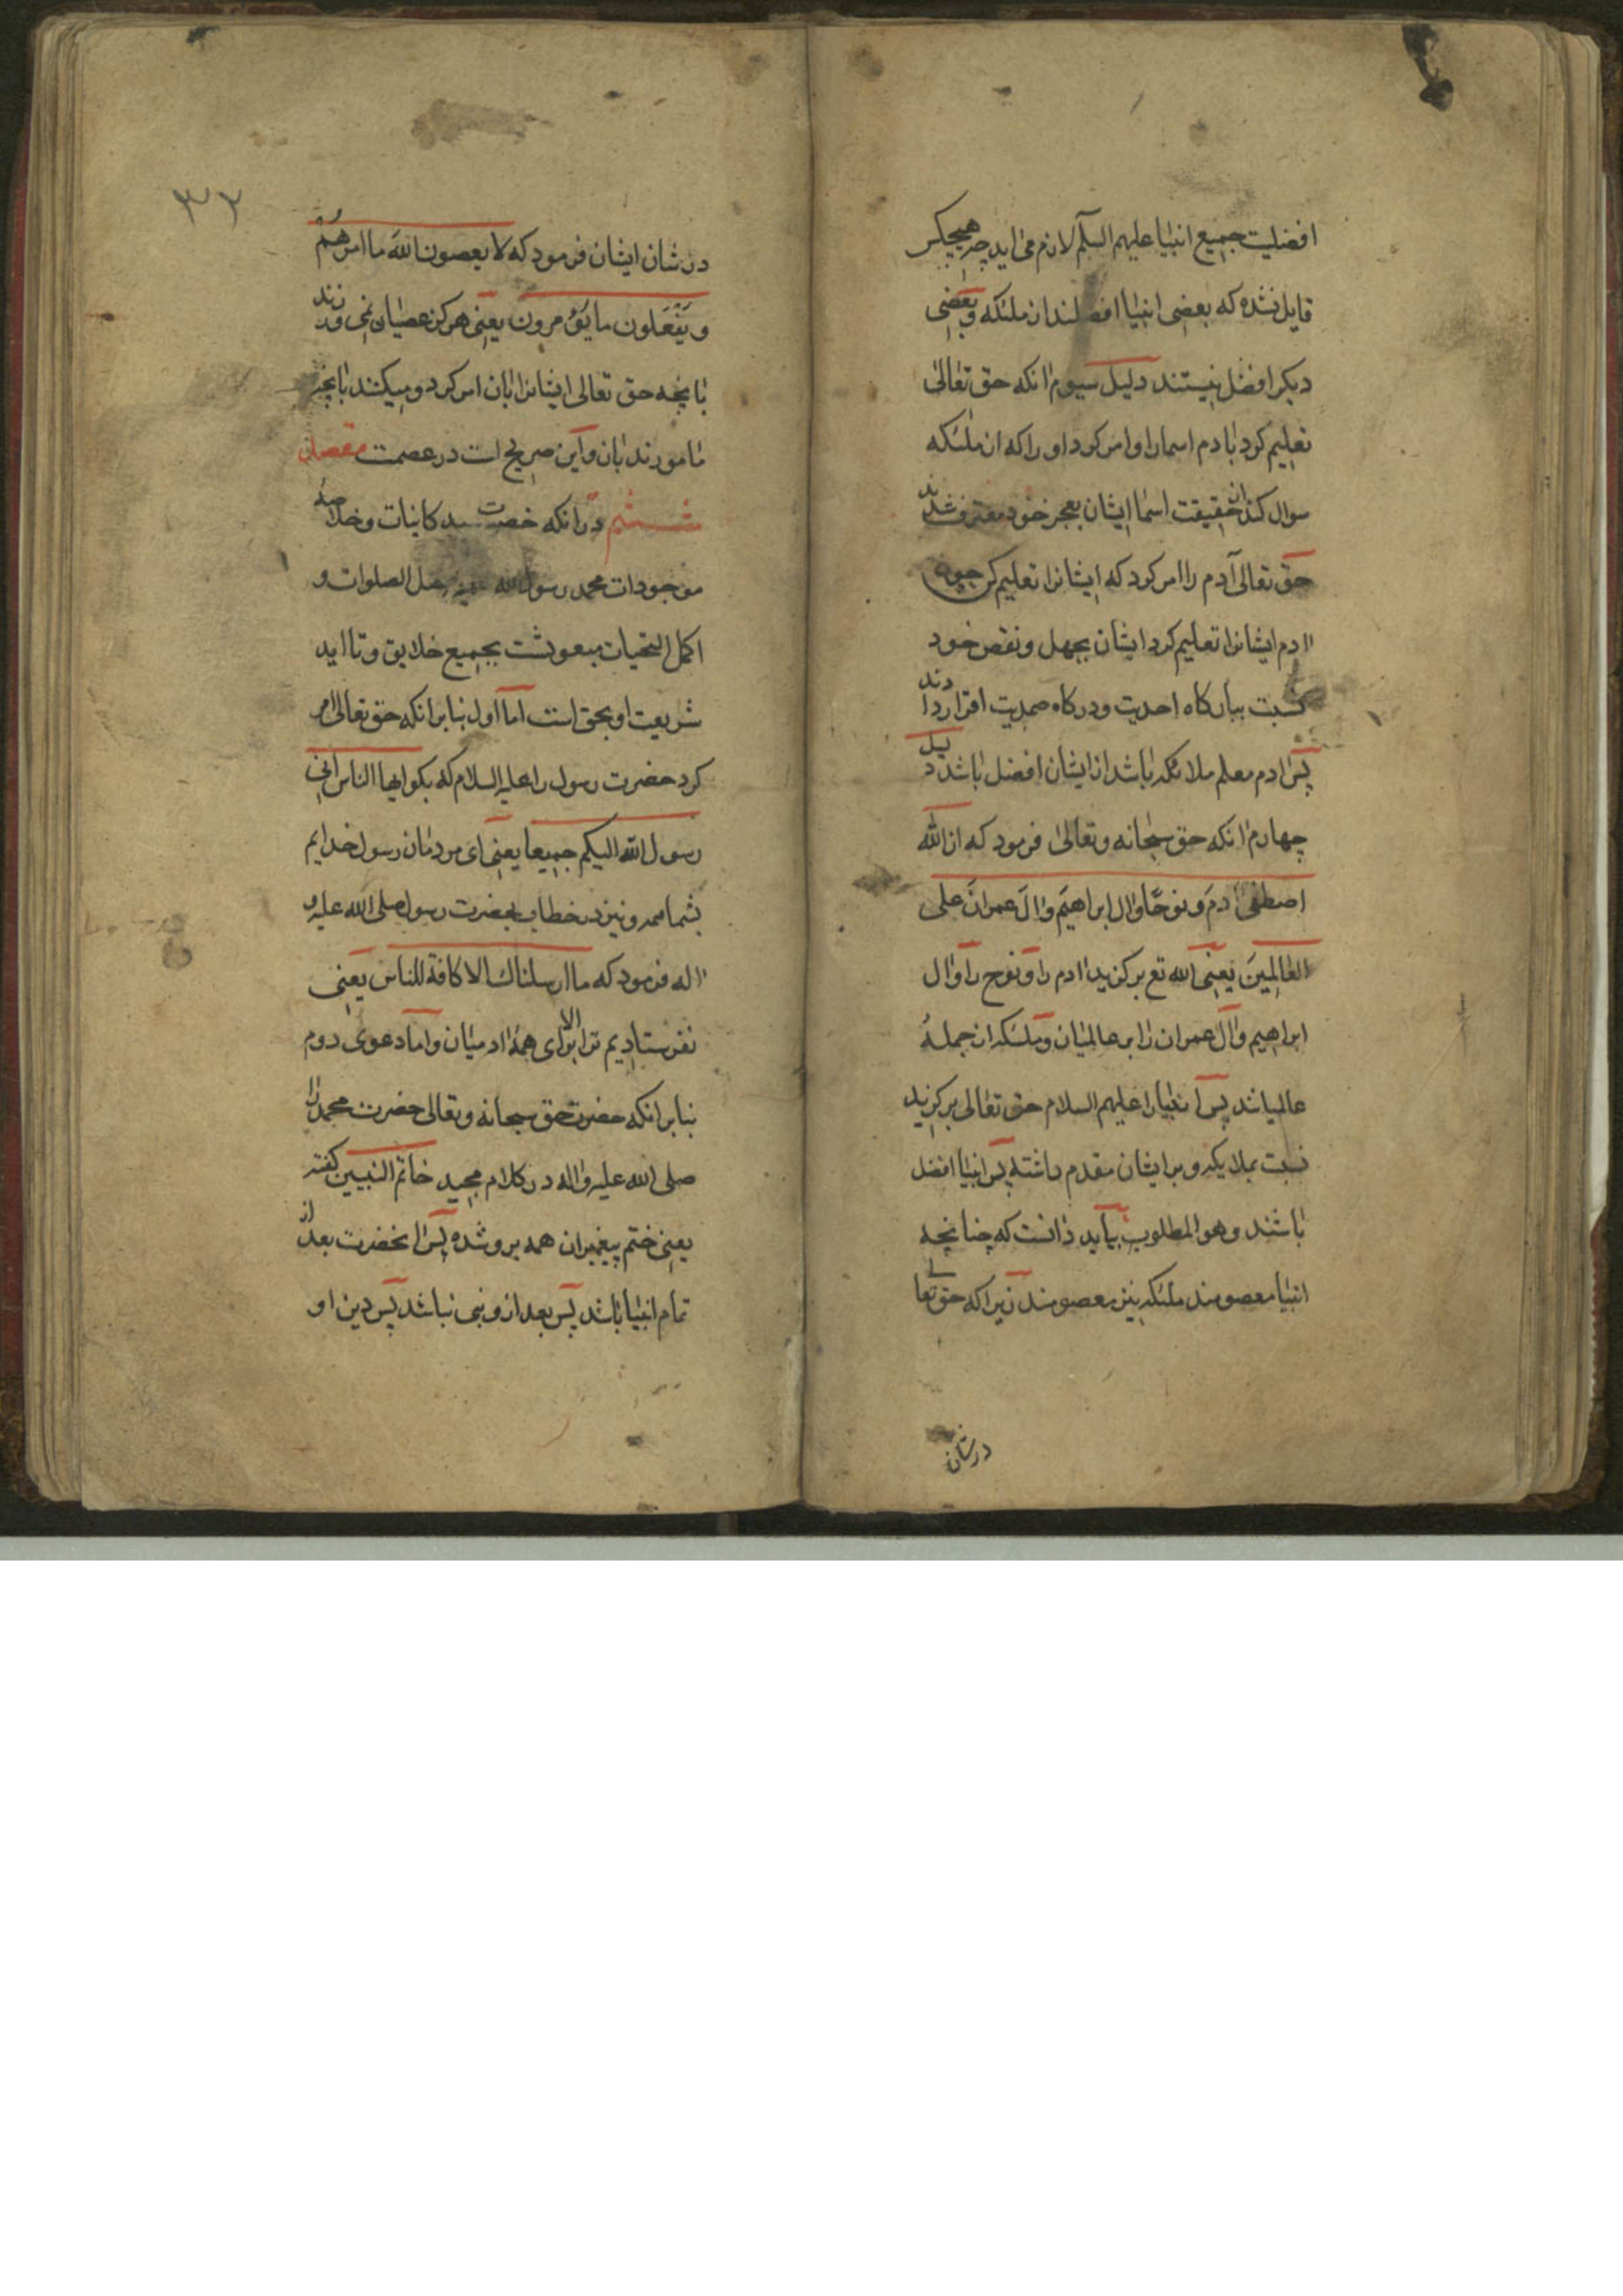 افضلیت جمیع انبیا علیهم السلم لازم می اید چه هیچکس
قایل نشده که بعضی انبیا افضلند از ملئکه و بعضی
دیکر افضل نیستند دلیل سیوم انکه حق تعالی
تعلیم کرد بادم اسما را و امر کرد او را که از ملئکه
سوال کند از حقیقت اسما ایشان بعجز خود معترف شدند
حق تعالی آدم را امر کرد که ایشانرا تعلیم کن چون
ادم ایشانرا تعلیم کرد ایشان بجهل و نقص خود
نسبت ببارکاه احدیت و درکاه صمدیت اقرار دادند
پس ادم معلم ملائکه باشد از ایشان افضل باشد دلیل
چهارم انکه حق سبحانه وتعالی فرمود که ان الله
اصطفی ادم و نوحًا وال ابراهیم وال عمران علی
العالمین یعنی الله تع برکزید ادم را و نوح را و ال
ابراهیم و ال عمران را بر عالمیان و ملئکه از جملهٔ
عالمیاند پس انبیا را علیهم السلام حق تعالی برکزید
نسبت بملایکه و بر ایشان مقدم داشته پس انبیا افضل
باشند وهو المطلوب بباید دانست که چنانچه
انبیا معصومند ملئکه نیز معصومند زیرا که حق تعالی
در شان
۳۲
در شان ایشان فرمود که لا یعصون الله ما امرهم
و یفعلون ما یؤمرون یعنی هرکز عصیان نمی ورزند
بانچه حق تعالی ایشانرا بان امر کرد و میکنند بانچه
مامورند بان و این صریح است در عصمت مقصد
ششم در انکه حضرت سید کاینات و خلاصهٔ
موجودات محمد رسول الله علیه افضل الصلوات و
اکمل التحیات مبعوثست بجمیع خلایق و تا ابد
شریعت او بحق است اما اول بنابر انکه حق تعالی امر
کرد حضرت رسول را علیه السلام که بکو ایها الناس انی
رسول الله الیکم جمیعا یعنی ای مردمان رسول خدایم
بشما همه و نیز در خطاب بحضرت رسول صلی الله علیه و
اله فرمود که ما ارسلناک الا کافة للناس یعنی
نفرستادیم ترا الا برای همهٔ ادمیان و اما دعوی دوم
بنابر انکه حضرت حق سبحانه وتعالی حضرت محمد را
صلی الله علیه واله در کلام مجید خاتم النبیین کفته
یعنی ختم پیغمبران همه برو شده پس انحضرت بعد از
تمام انبیا باشد پس بعد ازو نبی نباشد پس دین او